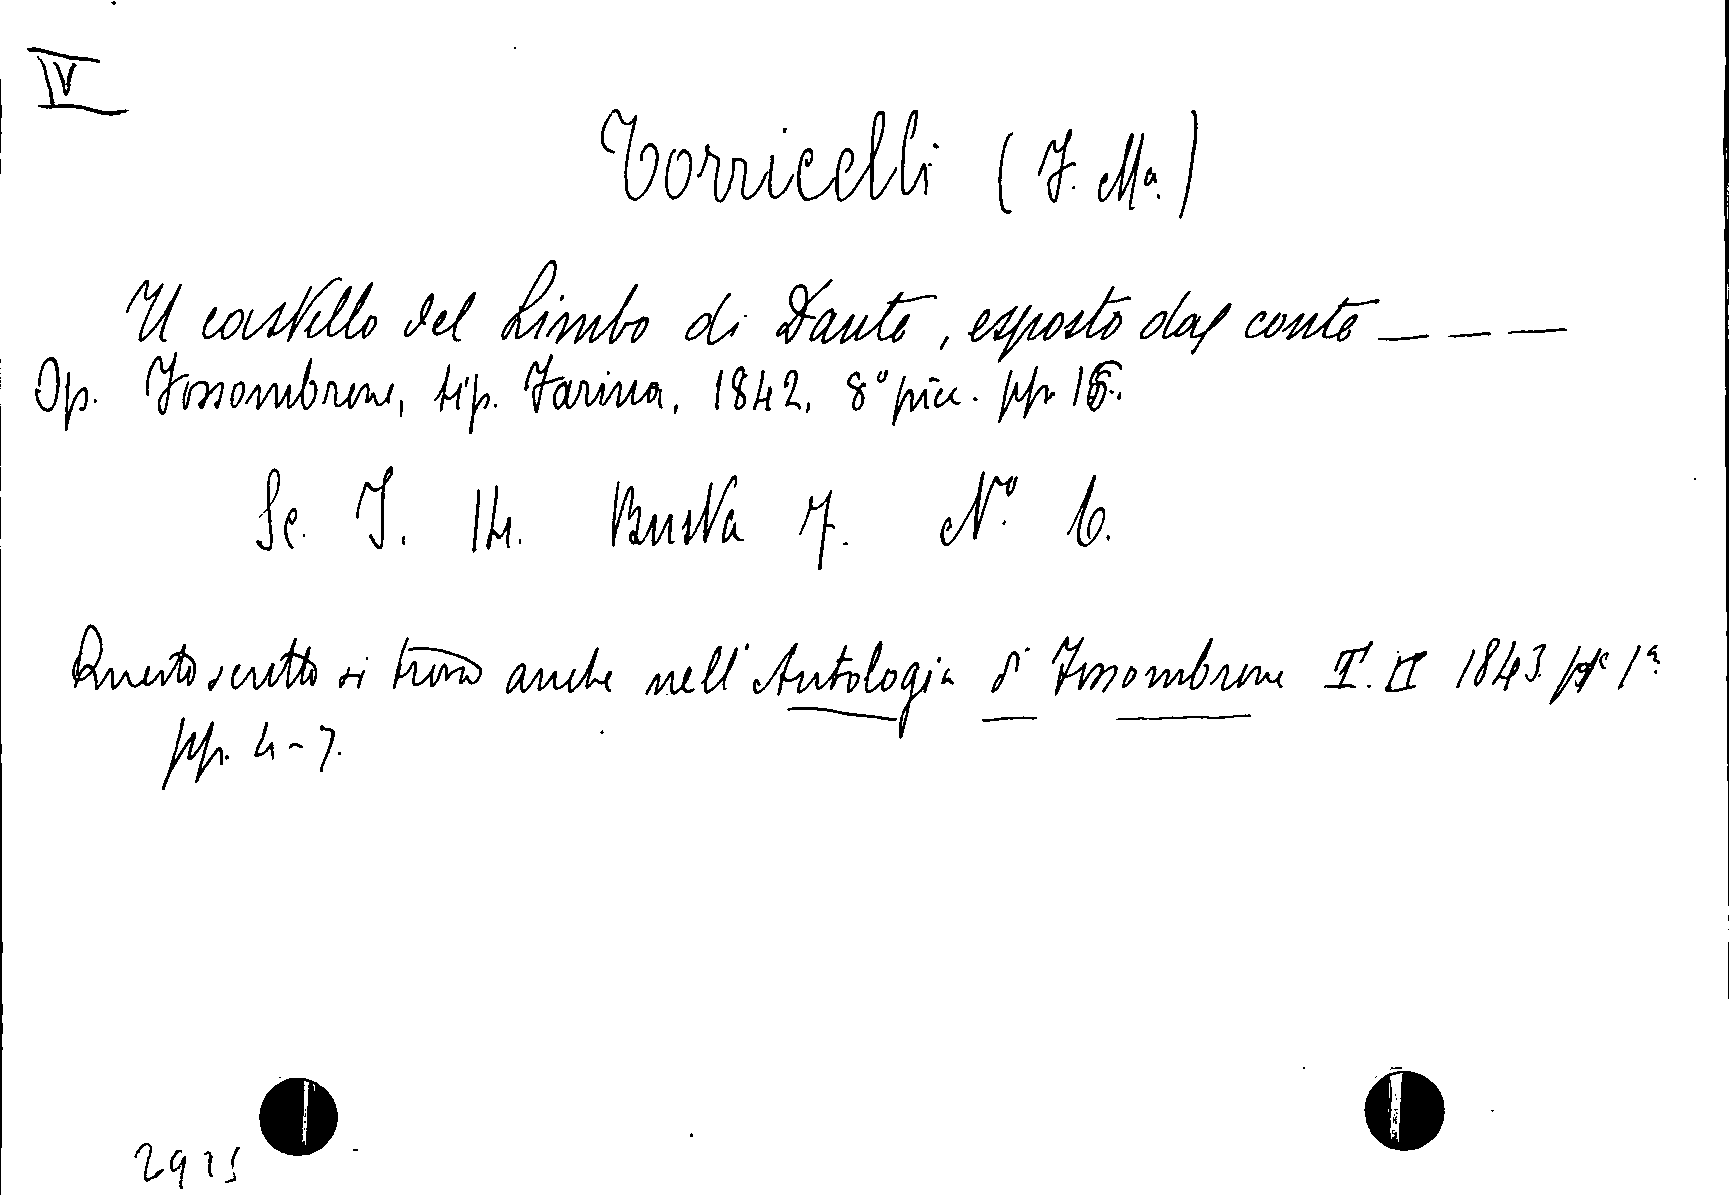 IV
Torricelli (F. Ma.)
Il castello del Limbo di Dante, esposto dal conte _ _ _
Op. Fossombrone, tip. Farina, 1842, 8° picc. pp. 16.
Sc. F. 14. Busta 7. N.° 6.
Questo scritto si trova anche nell'Antologia di Fossombrone T. II 1843. pte 1a.
pp. 4-7.